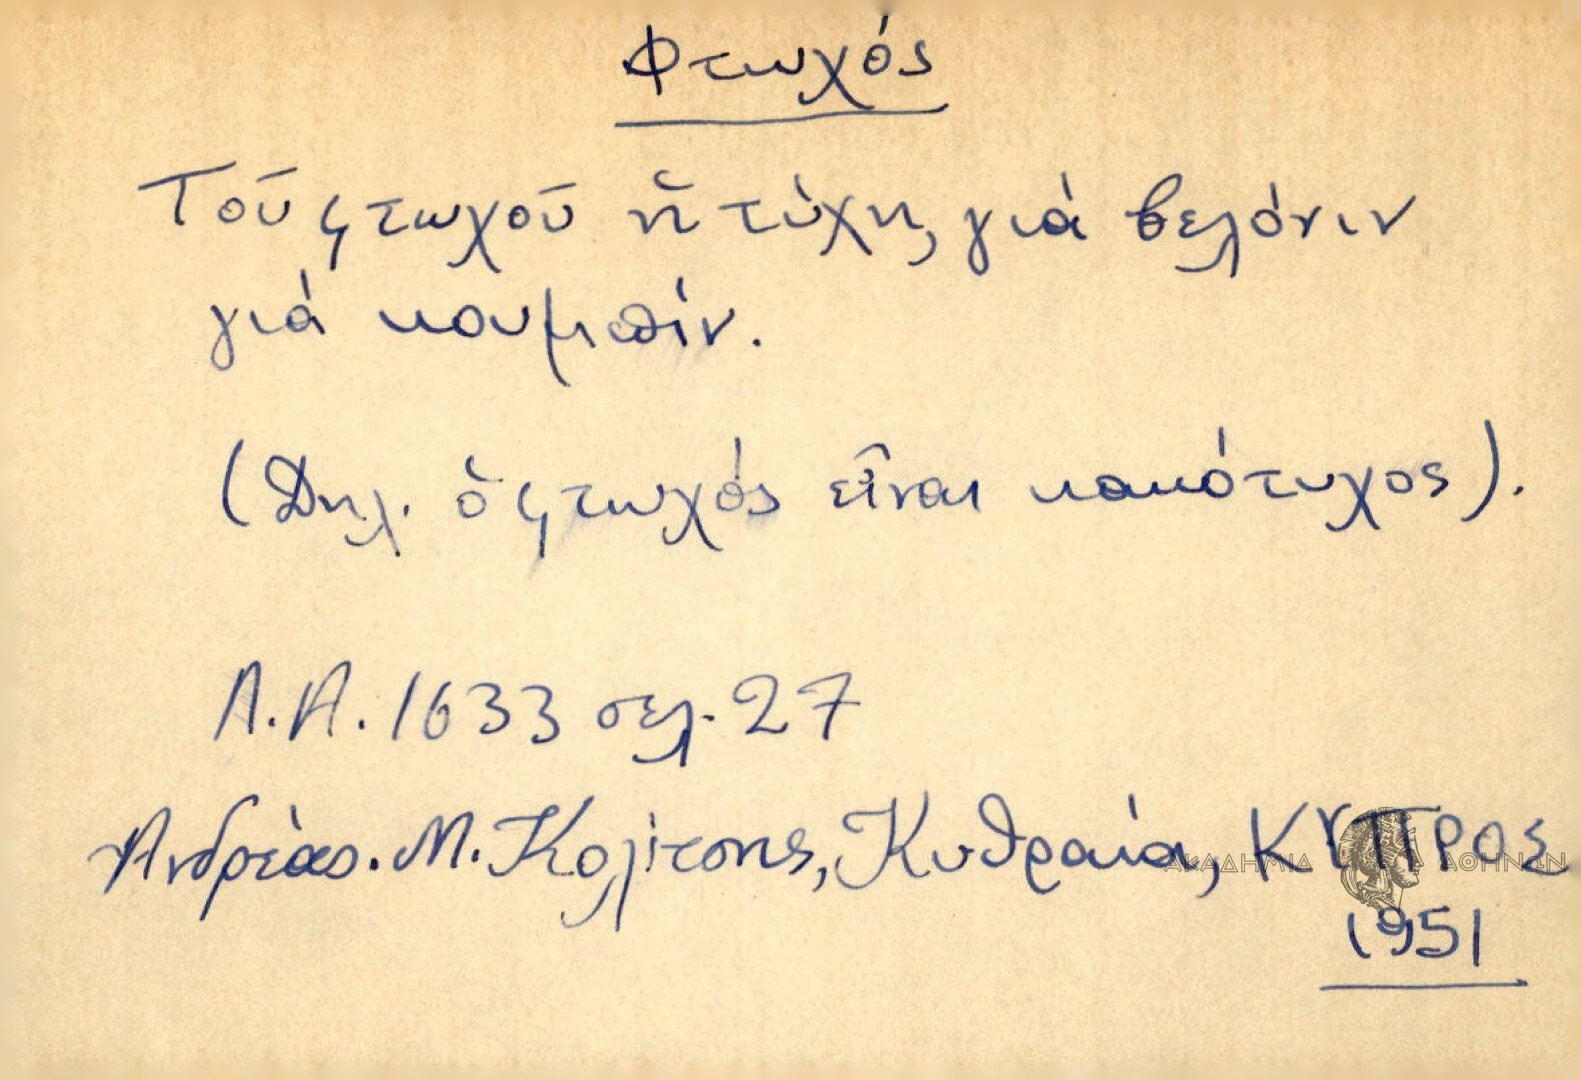 Φτωχός
Τοῦ φτωχοῦ ἡ τύχη, γιά βελόνιν
γιά κουμπίν.
(Δηλ. ὁ φτωχός εἶναι κακότυχος).
Λ.Α. 1633 σελ. 27
Ἀνδρέας. Μ. Κολίτσης, Κυθραία, ΚΥΠΡΟΣ
1951
ΑΚΑΔΗΜΙΑ ΑΘΗΝΩΝ